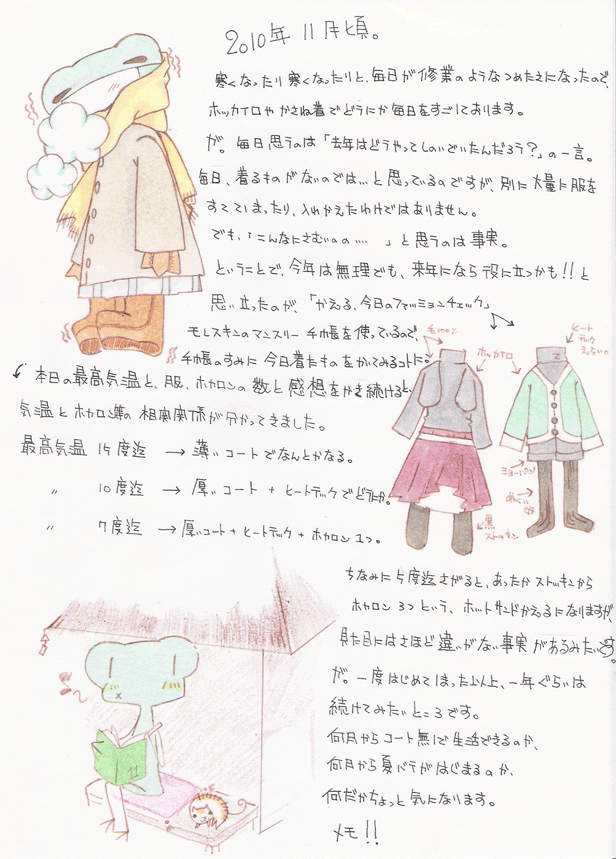 2010年 11月頃。
寒くなったり寒くなったりと、毎日が修業のようなつめたさになったので、
ホッカイロやかさね着でどうにか毎日をすごしております。
が。毎日思うのは「去年はどうやってしのいでいたんだろう?」の一言。
毎日、着るものがないのでは…と思っているのですが、別に大量に服を
すてていまったり、入れかえたわけではありません。
でも、「こんなにさむいのの....」と思うのは事実。
ということで、今年は無理でも、来年になら役に立つかも!!と
思い立ったのが、「かえる、今日のファッションチェック」
モレスキンのマンスリー手帳を使っているので、
手帳のすみに今日着たものをかいてみるコトに。
本日の最高気温と、服、ホカロンの数と感想をかき続けると、
気温とホカロン等の相関関係が分かってきました。
最高気温 15度迄 → 薄いコートでなんとかなる。
〃 10度迄 → 厚いコート + ヒートテックでどうにか。
〃 7度迄 → 厚いコート+ヒートテック+ホカロン1つ。
毛100%
ホッカイロ
ヒートテック
黒ストッキン
ちなみに5度迄さがると、あったかストッキンから
ホカロン3つという、ホットサンドかえるになりますが、
見た目にはさほど違いがない事実があるみたいです。
が。一度はじめてしまった以上、一年ぐらいは
続けてみたいところです。
何月からコート無しで生活できるのか、
何月から夏バテがはじまるのか、
何だかちょっと気になります。
メモ!!
11